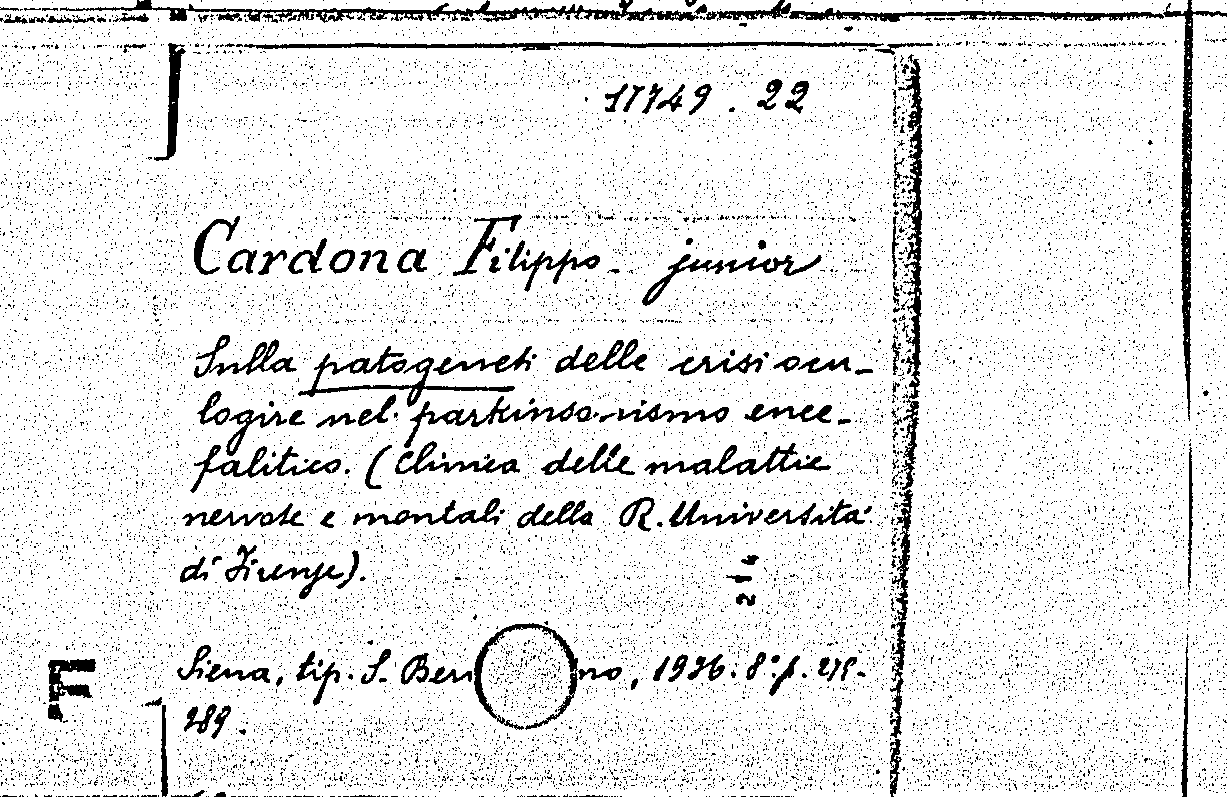 17749. 22
Cardona Filippo. junior
Sulla patogenesi delle crisi ocu-
logire nel parkinsonismo ence-
falitico. (Clinica delle malattie
nervose e mentali della R. Università
di Firenze).
Siena, tip. S. Ber no, 1936. 8° p. 275-
289.
F